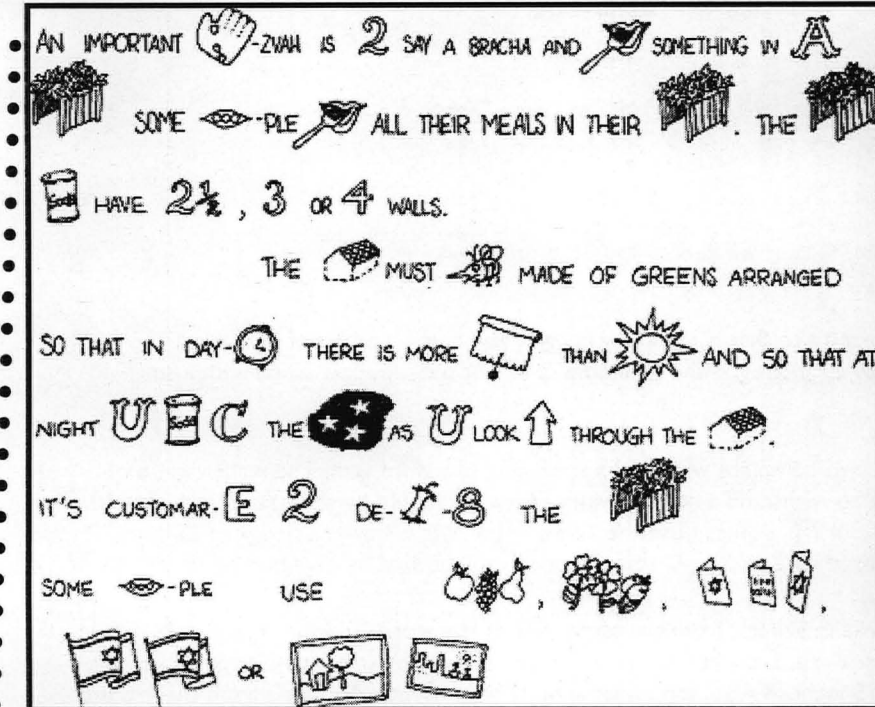 AN IMPORTANT -ZVAH IS 2 SAY A BRACHA AND SOMETHING IN A
SOME -PLE ALL THEIR MEALS IN THEIR . THE
Soda HAVE 2½, 3 OR 4 WALLS.
THE MUST MADE OF GREENS ARRANGED
SO THAT IN DAY- THERE IS MORE THAN AND SO THAT AT
NIGHT U Soda C THE AS U LOOK THROUGH THE .
IT'S CUSTOMAR-E 2 DE- -8 THE
SOME -PLE USE , , ,
OR